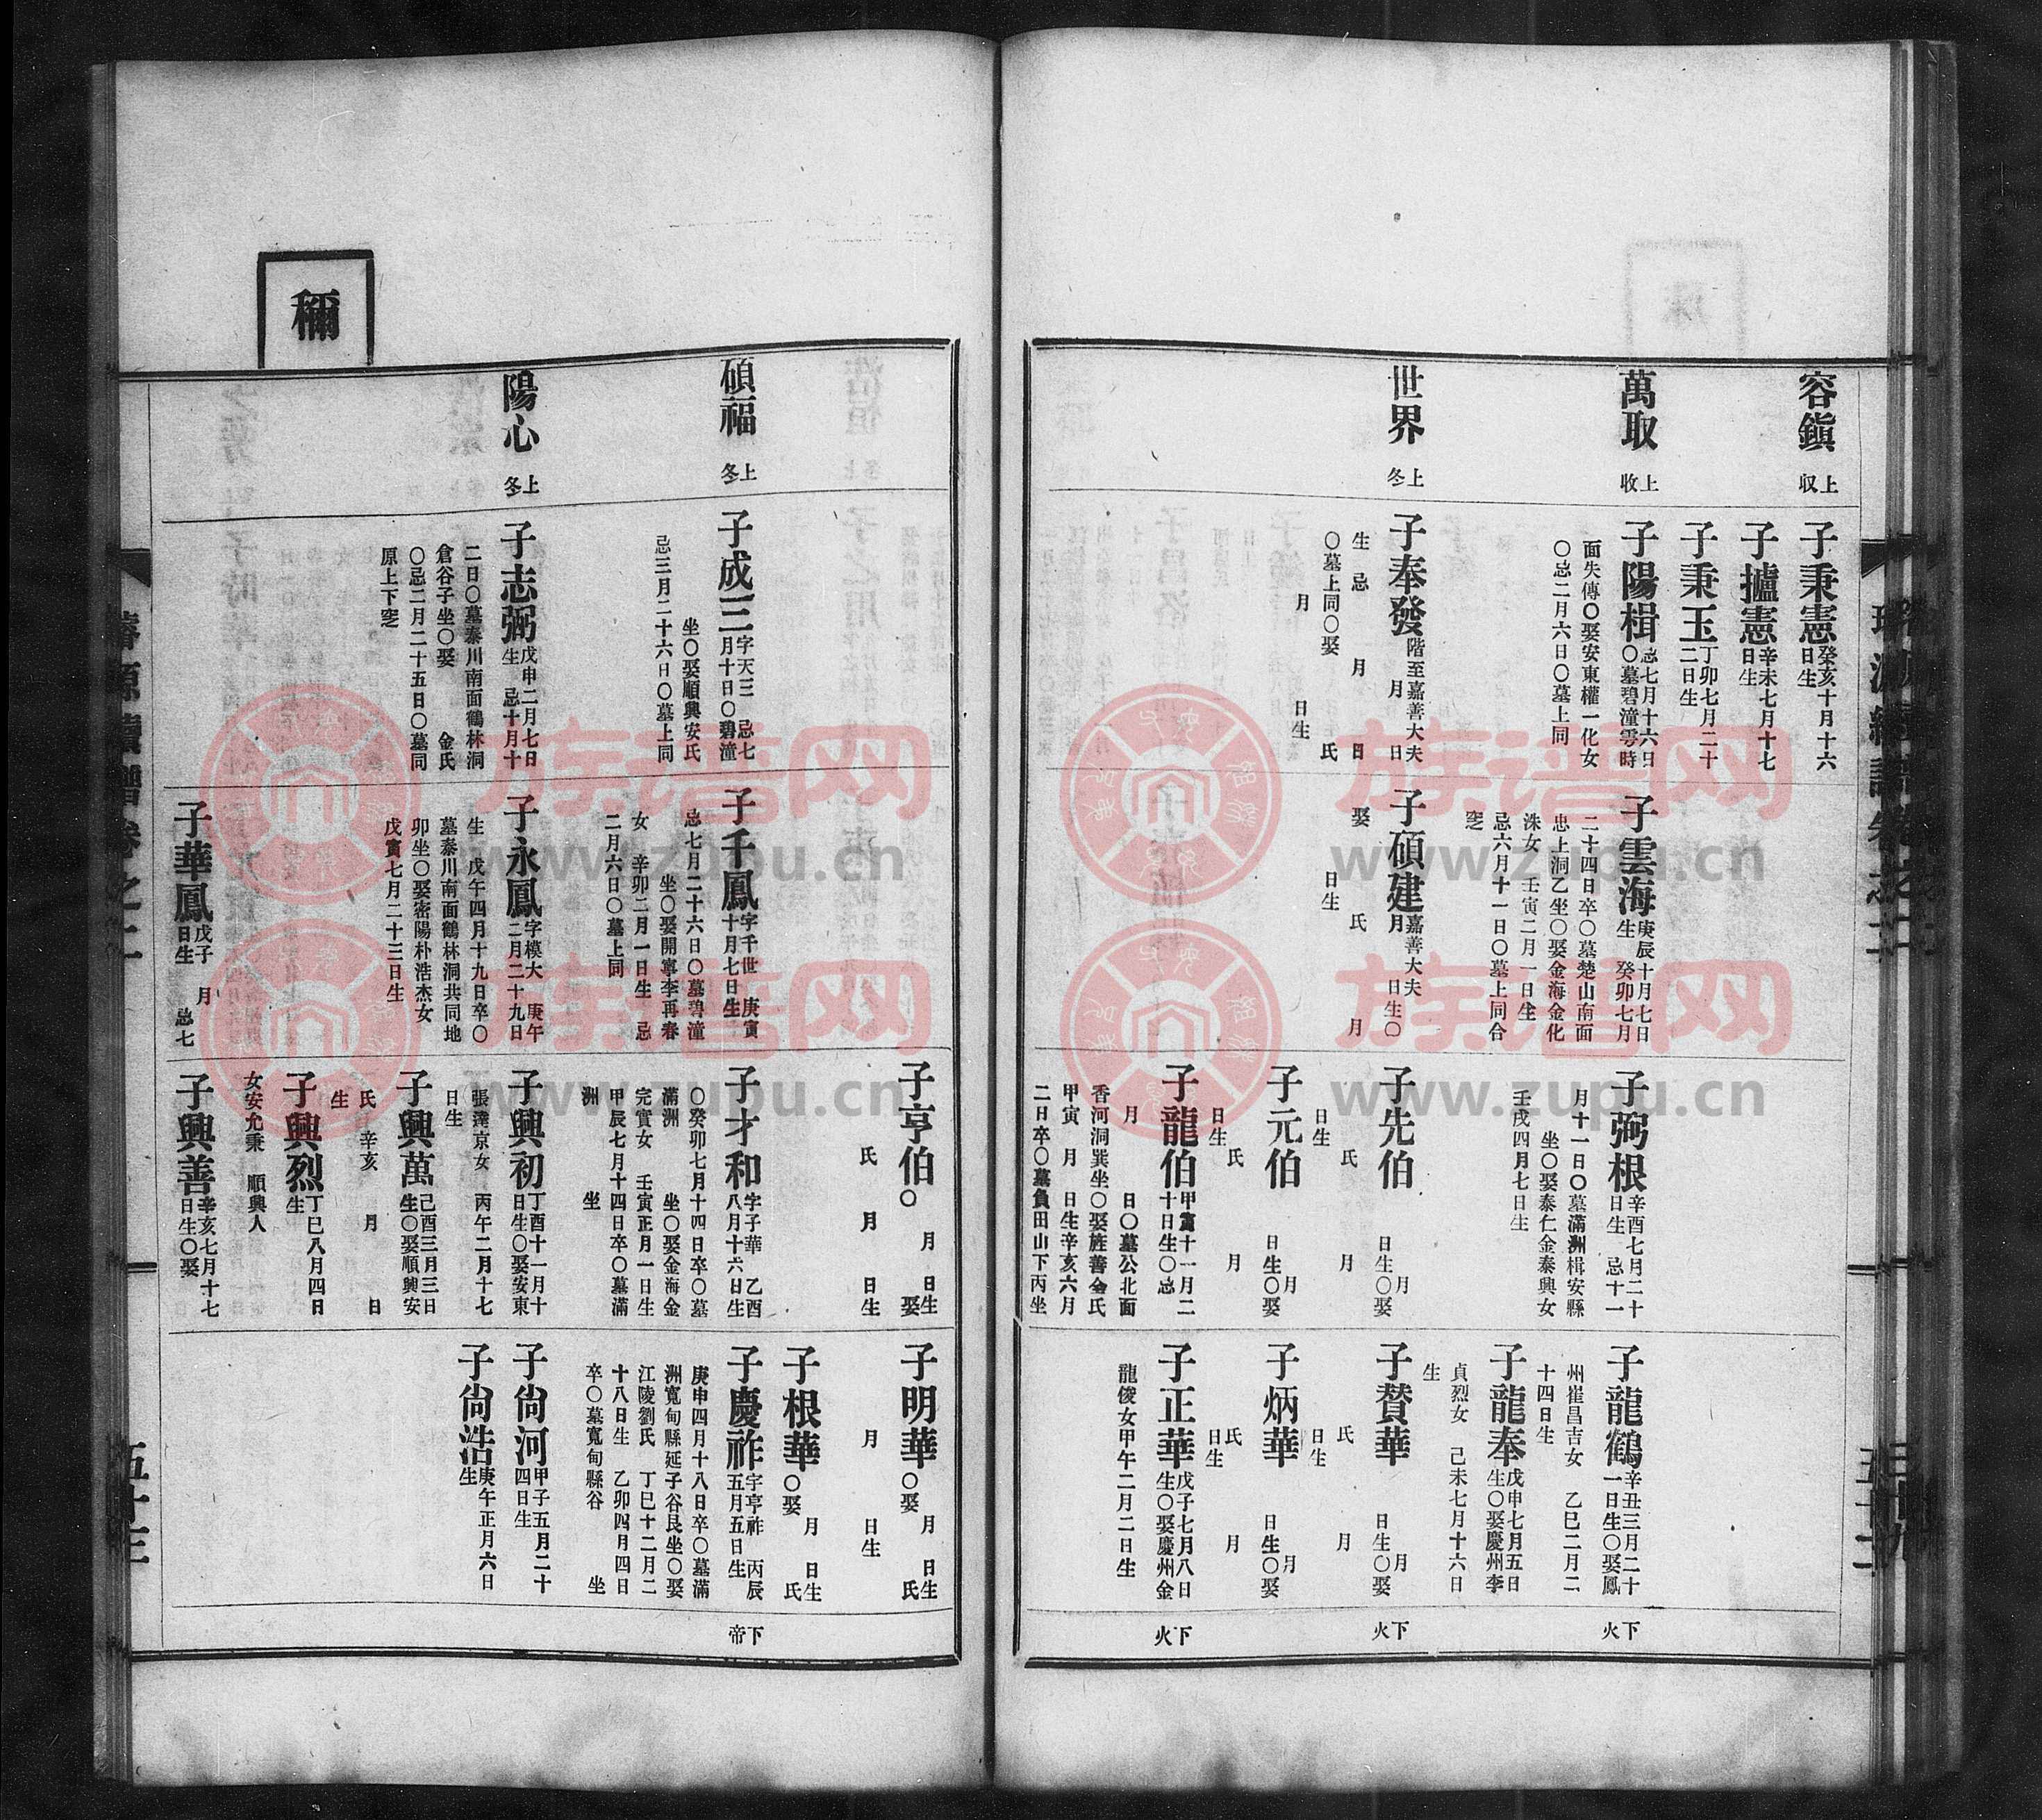 容鎭 上収
子秉憲 癸亥十月十六日生
子攎憲 辛未七月十七日生
子秉玉 丁卯七月二十二日生
萬取 上收
子陽楫 忌七月十六日〇墓碧潼雩時
面失傳〇娶安東權一化女
〇忌二月六日〇墓上同
子雲海 庚辰十月七日生 癸卯七月
二十四日卒〇墓楚山南面
忠上洞乙坐〇娶金海金化
洙女 壬寅二月一日生
忌六月十一日〇墓上同合
窆
子弼根 辛酉七月二十日生 忌十一
月十一日〇墓滿洲楫安縣
坐〇娶泰仁金泰興女
壬戌四月七日生
子龍鶴 辛丑三月二十一日生〇娶鳳
州崔昌吉女 乙巳二月二
十四日生
子龍奉 戊申七月五日生〇娶慶州李
貞烈女 己未七月十六日
生
下火
世界 上冬
子奉發 階至嘉善大夫 月 日
生 忌 月 日
〇墓上同〇娶 氏
月 日生
子碩建 嘉善大夫 月 日生〇
娶 氏 月
日生
子先伯 月 日生〇娶
氏 月
日生
子贊華 月 日生〇娶
氏 月
日生
下火
子元伯 月 日生〇娶
氏 月
日生
子炳華 月 日生〇娶
氏 月
日生
子龍伯 甲寅十一月二十日生〇忌
月 日〇墓公北面
香河洞巽坐〇娶旌善金氏
甲寅 月 日生辛亥六月
二日卒〇墓負田山下丙坐
子正華 戊子七月八日生〇娶慶州金
龍俊女甲午二月二日生
下火
子亨伯〇 月 日生 娶
氏 月 日生
子明華 〇娶 月 日生 氏
月 日生
子根華 〇娶 月 日生 氏
碩福 上冬
子成三 字天三 忌七月十日〇碧潼
坐〇娶順興安氏
忌三月二十六日〇墓上同
子千鳳 字千世 庚寅十月七日生
忌七月二十六日〇墓碧潼
坐〇娶開寧李再春
女 辛卯二月一日生 忌
二月六日〇墓上同
子才和 字子華 乙酉八月十六日生
〇癸卯七月十四日卒〇墓
滿洲 坐〇娶金海金
完實女 壬寅正月一日生
甲辰七月十四日卒〇墓滿
洲 坐
子慶祚 字亨祚 丙辰五月五日生
庚申四月十八日卒〇墓滿
洲寬甸縣延子谷艮坐〇娶
江陵劉氏 丁巳十二月二
十八日生 乙卯四月四日
卒〇墓寬甸縣谷 坐
下帝
陽心 上冬
子志弼 戊申二月七日生 忌十月十
二日〇墓泰川南面鶴林洞
倉谷子坐〇娶 金氏
〇忌二月二十五日〇墓同
原上下窆
子永鳳 字模大 庚午二月二十九日
生 戊午四月十九日卒〇
墓泰川南面鶴林洞共同地
卯坐〇娶密陽朴浩杰女
戊寅七月二十三日生
子興初 丁酉十一月十日生〇娶安東
張達京女 丙午二月十七
日生
子尙河 甲子五月二十四日生
子尙浩 庚午正月六日生
子興萬 己酉三月三日生〇娶順興安
氏 辛亥 月 日
生
子興烈 丁巳八月四日生
女安允秉 順興人
子華鳳 戊子 月 日生 忌七
子興善 辛亥七月十七日生〇娶
穪
五十三
族谱网
www.zupu.cn
族谱网
www.zupu.cn
族谱网
www.zupu.cn
族谱网
www.zupu.cn